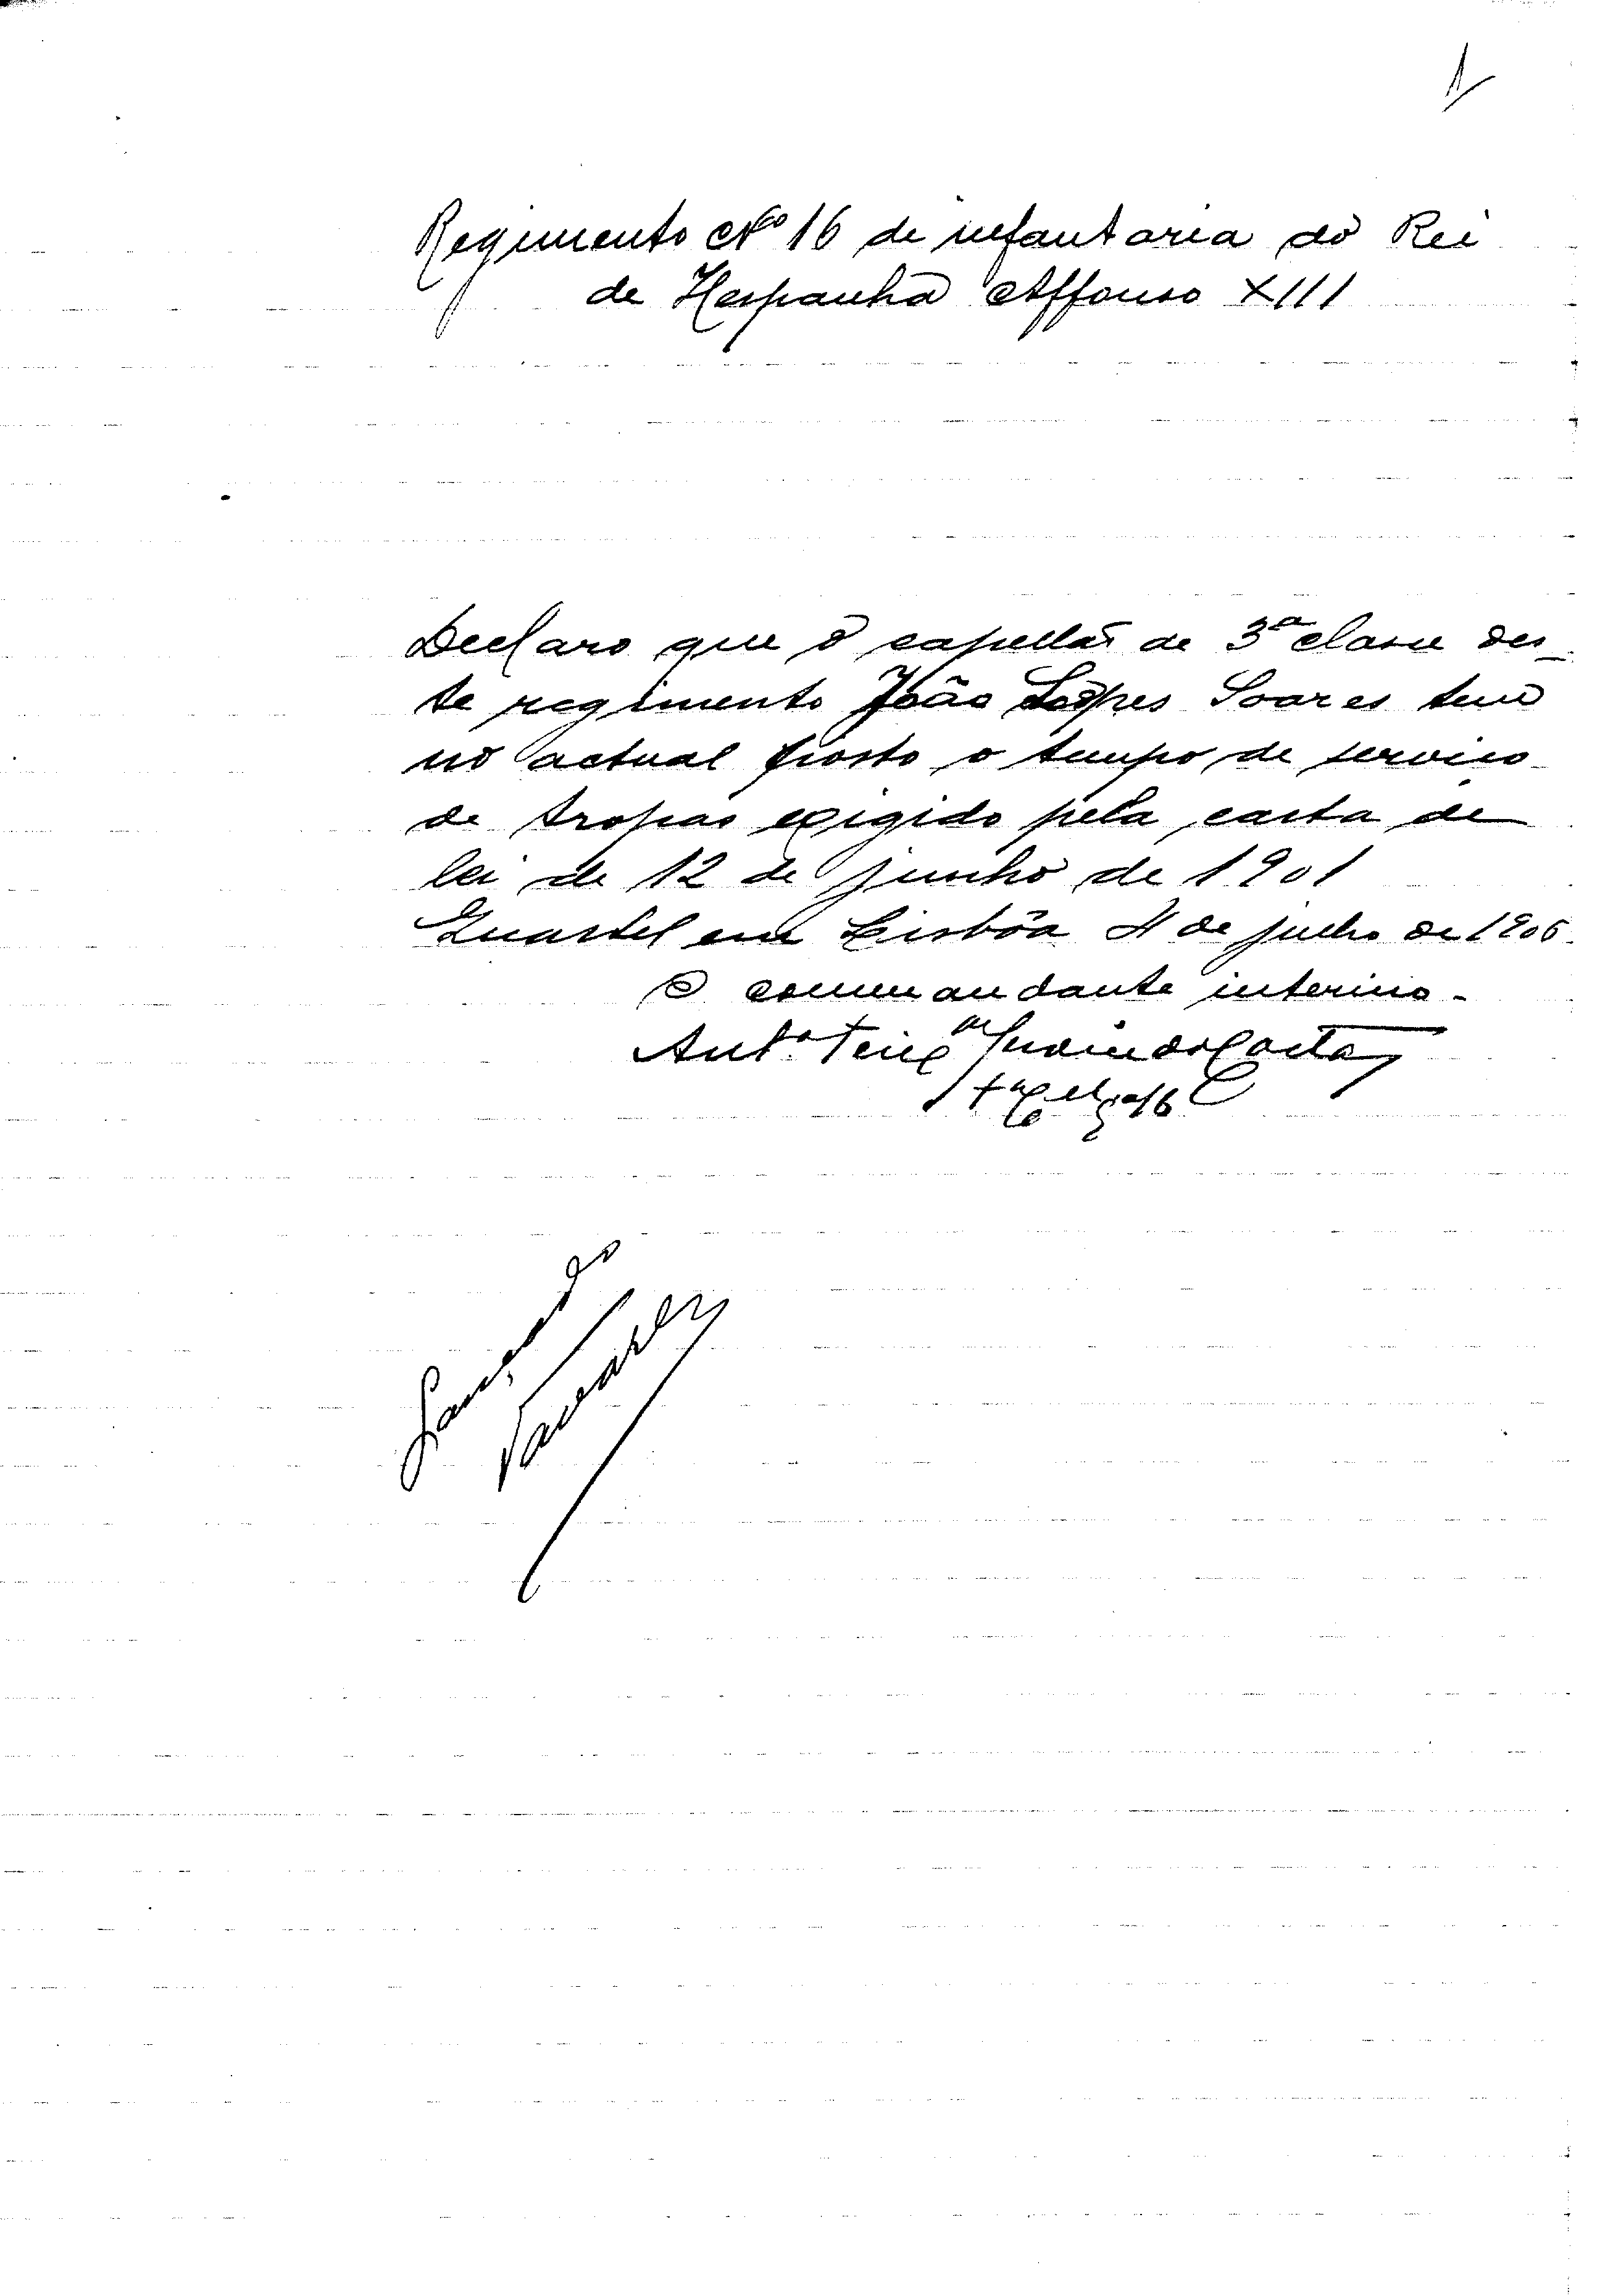 1
Regimento Nº 16 de infantaria do Rei
de Hespanha Affonso XIII
Declaro que o capellão de 3ª classe des-
te regimento João Lopes Soares tem
no actual posto o tempo de serviço
de tropas exigido pela carta de
lei de 12 de junho de 1901
Quartel em Lisbôa 4 de julho de 1906.
O commandante interino.
Antº Teix